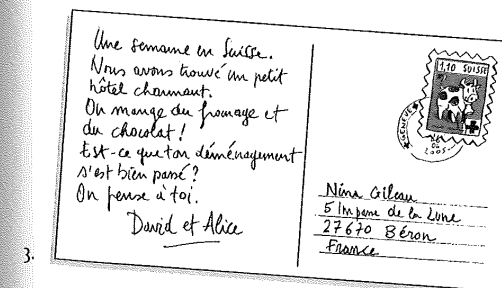 Une semaine en Suisse.
Nous avons trouvé un petit
hôtel charmant.
On mange du fromage et
du chocolat !
Est-ce que ton déménagement
s'est bien passé ?
On pense à toi.
David et Alice
1,10 SUISSE
GENEVE
2005
Nina Gileau
5 Impasse de la Lune
27670 Béron
France
3.